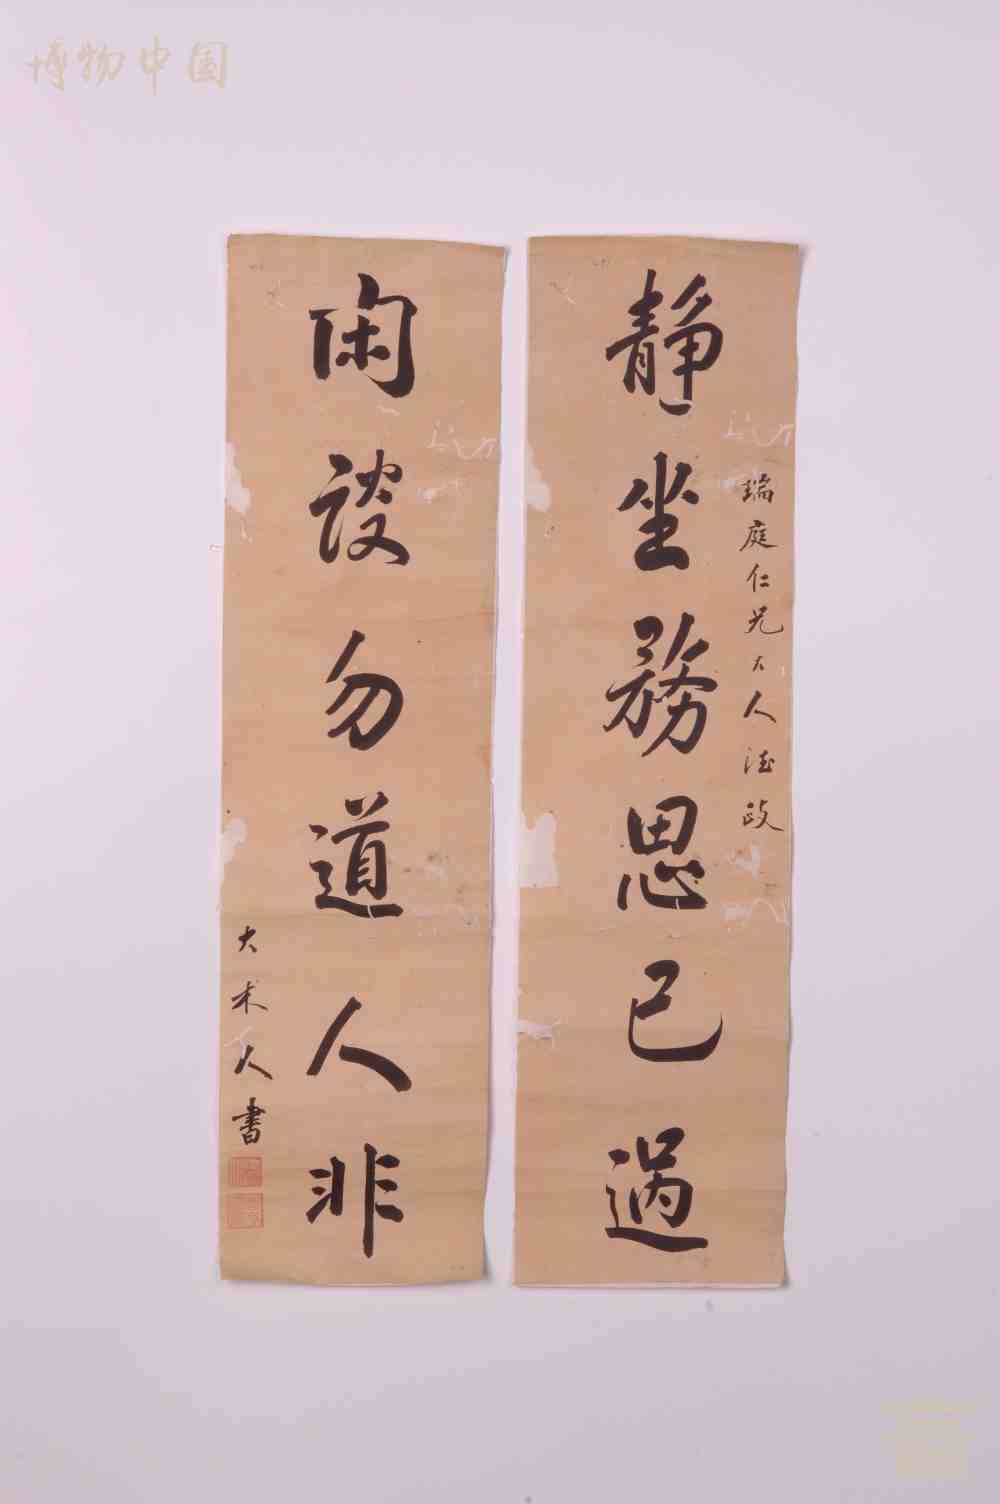 博物中国
静坐務思己過
瑞庭仁兄大人法政
闲談勿道人非
大木人書